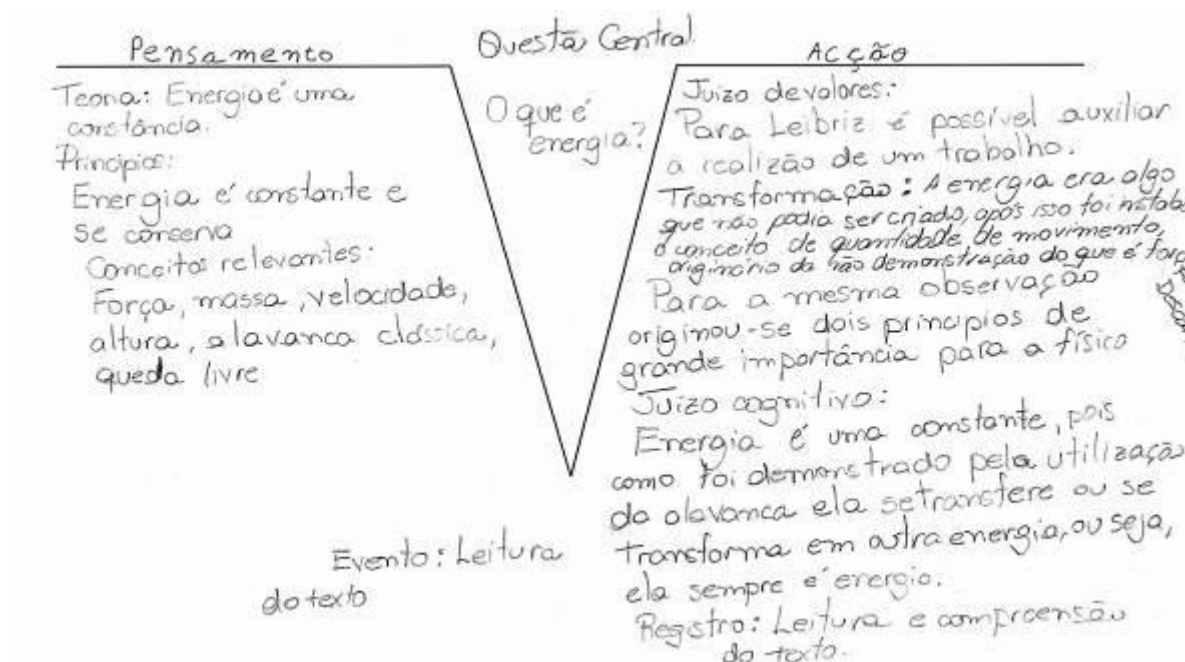 Pensamento
Teoria: Energia é uma
constância.
Princípios:
Energia é constante e
se conserva
Conceitos relevantes:
Força, massa, velocidade,
altura, alavanca clássica,
queda livre
Questão Central
O que é
energia?
Acção
Juizo de valores:
Para Leibriz é possível auxiliar
a realizão de um trabalho.
Transformação: A energia era algo
que não podia ser criado, após isso foi
o conceito de quantidade de movimento,
originário da não demonstração do que é
Para a mesma observação
originou-se dois principios de
grande importância para a físico
Juizo cognitivo:
Energia é uma constante, pois
como foi demonstrado pela utilização
da alavanca ela se transfere ou se
transforma em outra energia, ou seja,
ela sempre é energia.
Registro: Leitura e compreensão
do texto.
Evento: Leitura
do texto